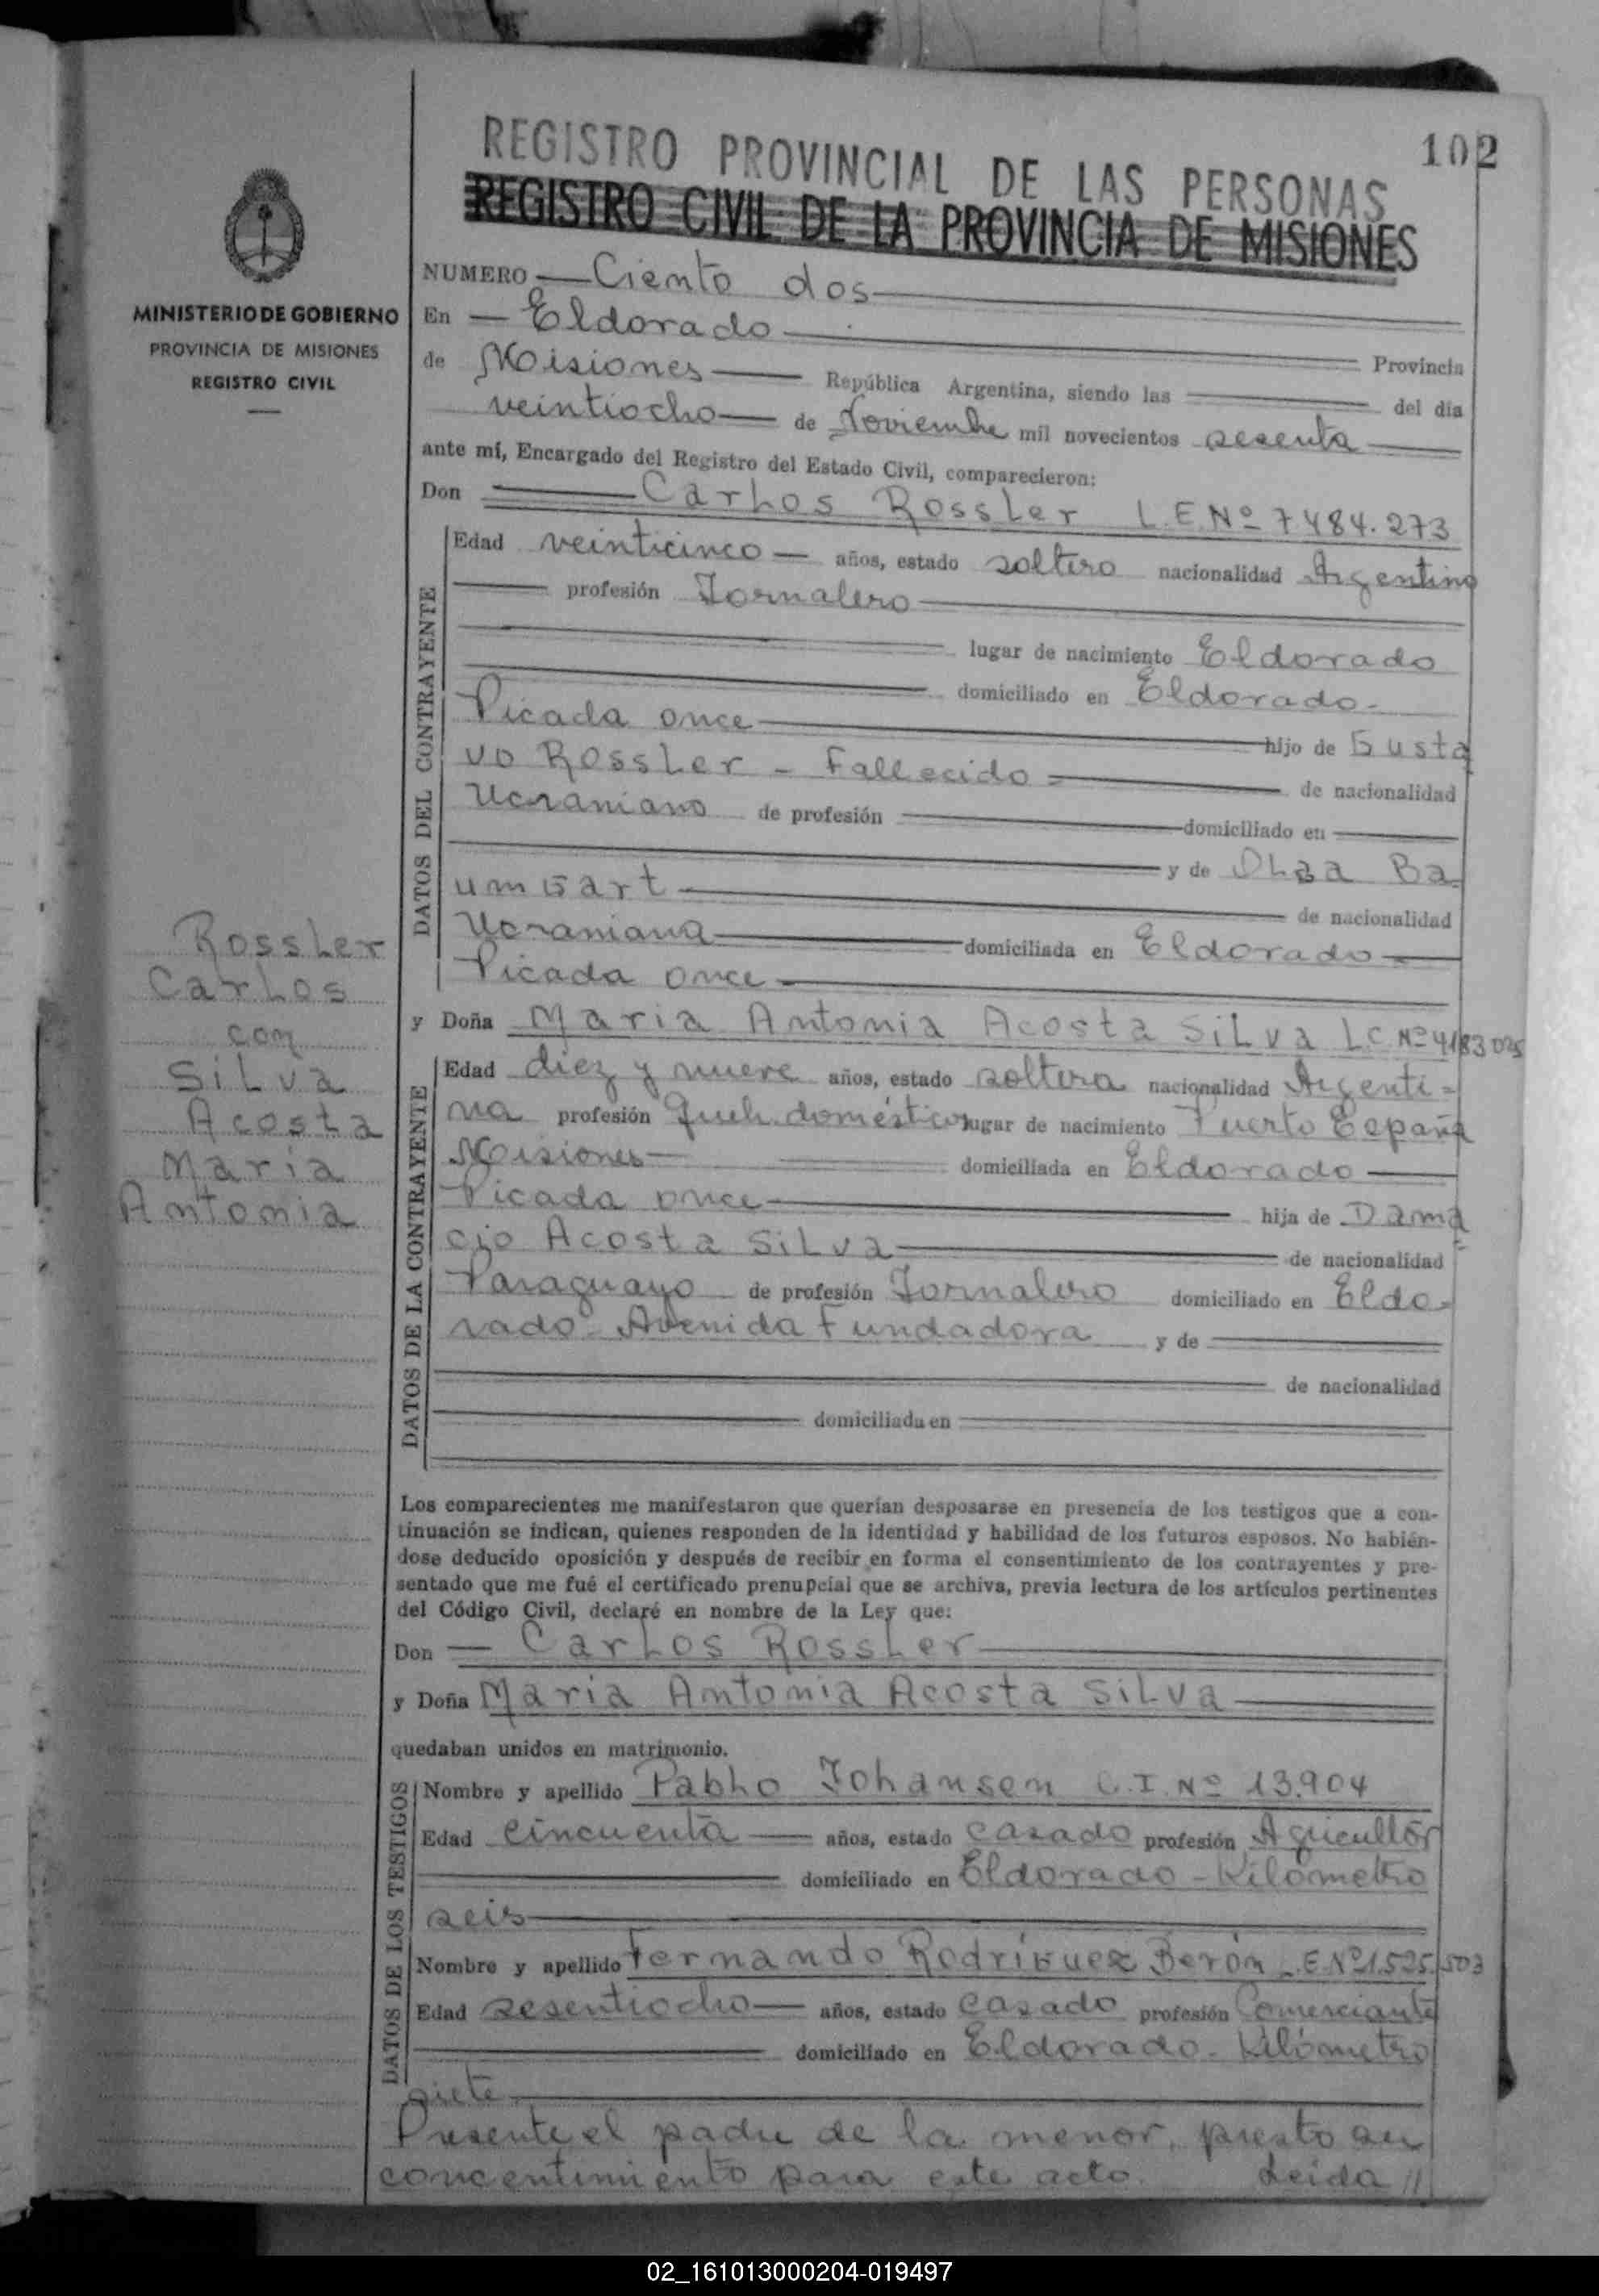 102
REGISTRO PROVINCIAL DE LAS PERSONAS
REGISTRO CIVIL DE LA PROVINCIA DE MISIONES
MINISTERIO DE GOBIERNO
PROVINCIA DE MISIONES
REGISTRO CIVIL
NUMERO Ciento dos
En Eldorado
Provincia
de Misiones República Argentina, siendo las del día
veintiocho de Noviembre mil novecientos sesenta
ante mí, Encargado del Registro del Estado Civil, comparecieron:
Don Carlos Rossler L.E.Nº 7484.273
DATOS DEL CONTRAYENTE
Edad veinticinco años, estado soltero nacionalidad Argentino
profesión Jornalero
lugar de nacimiento Eldorado
domiciliado en Eldorado-
Picada once hijo de Gusta
vo Rossler - Fallecido = de nacionalidad
Ucraniano de profesión domiciliado en
y de Olga Ba-
umgart de nacionalidad
Ucraniana domiciliada en Eldorado
Picada once
Rossler
Carlos
con
Silva
Acosta
Maria
Antonia
y Doña Maria Antonia Acosta Silva L.C. Nº 4183025
DATOS DE LA CONTRAYENTE
Edad diez y nueve años, estado soltera nacionalidad Argenti=
na profesión Queh. domésticos lugar de nacimiento Puerto España
Misiones domiciliada en Eldorado
Picada once hija de Dama
cio Acosta Silva de nacionalidad
Paraguayo de profesión Jornalero domiciliado en Eldo-
rado- Avenida Fundadora y de
de nacionalidad
domiciliada en
Los comparecientes me manifestaron que querían desposarse en presencia de los testigos que a con-
tinuación se indican, quienes responden de la identidad y habilidad de los futuros esposos. No habién-
dose deducido oposición y después de recibir en forma el consentimiento de los contrayentes y pre-
sentado que me fué el certificado prenupcial que se archiva, previa lectura de los artículos pertinentes
del Código Civil, declaré en nombre de la Ley que:
Don Carlos Rossler
y Doña Maria Antonia Acosta Silva
quedaban unidos en matrimonio.
DATOS DE LOS TESTIGOS
Nombre y apellido Pablo Johansen C.I. Nº 13.904
Edad cincuenta años, estado casado profesión Agricultor
domiciliado en Eldorado - Kilómetro
seis
Nombre y apellido Fernando Rodríguez Berón L.E Nº 1.525.503
Edad sesentiocho años, estado casado profesión Comerciante
domiciliado en Eldorado- Kilómetro
siete
Presente el padre de la menor, presto su
concentimiento para este acto. Leida //
02_161013000204-019497